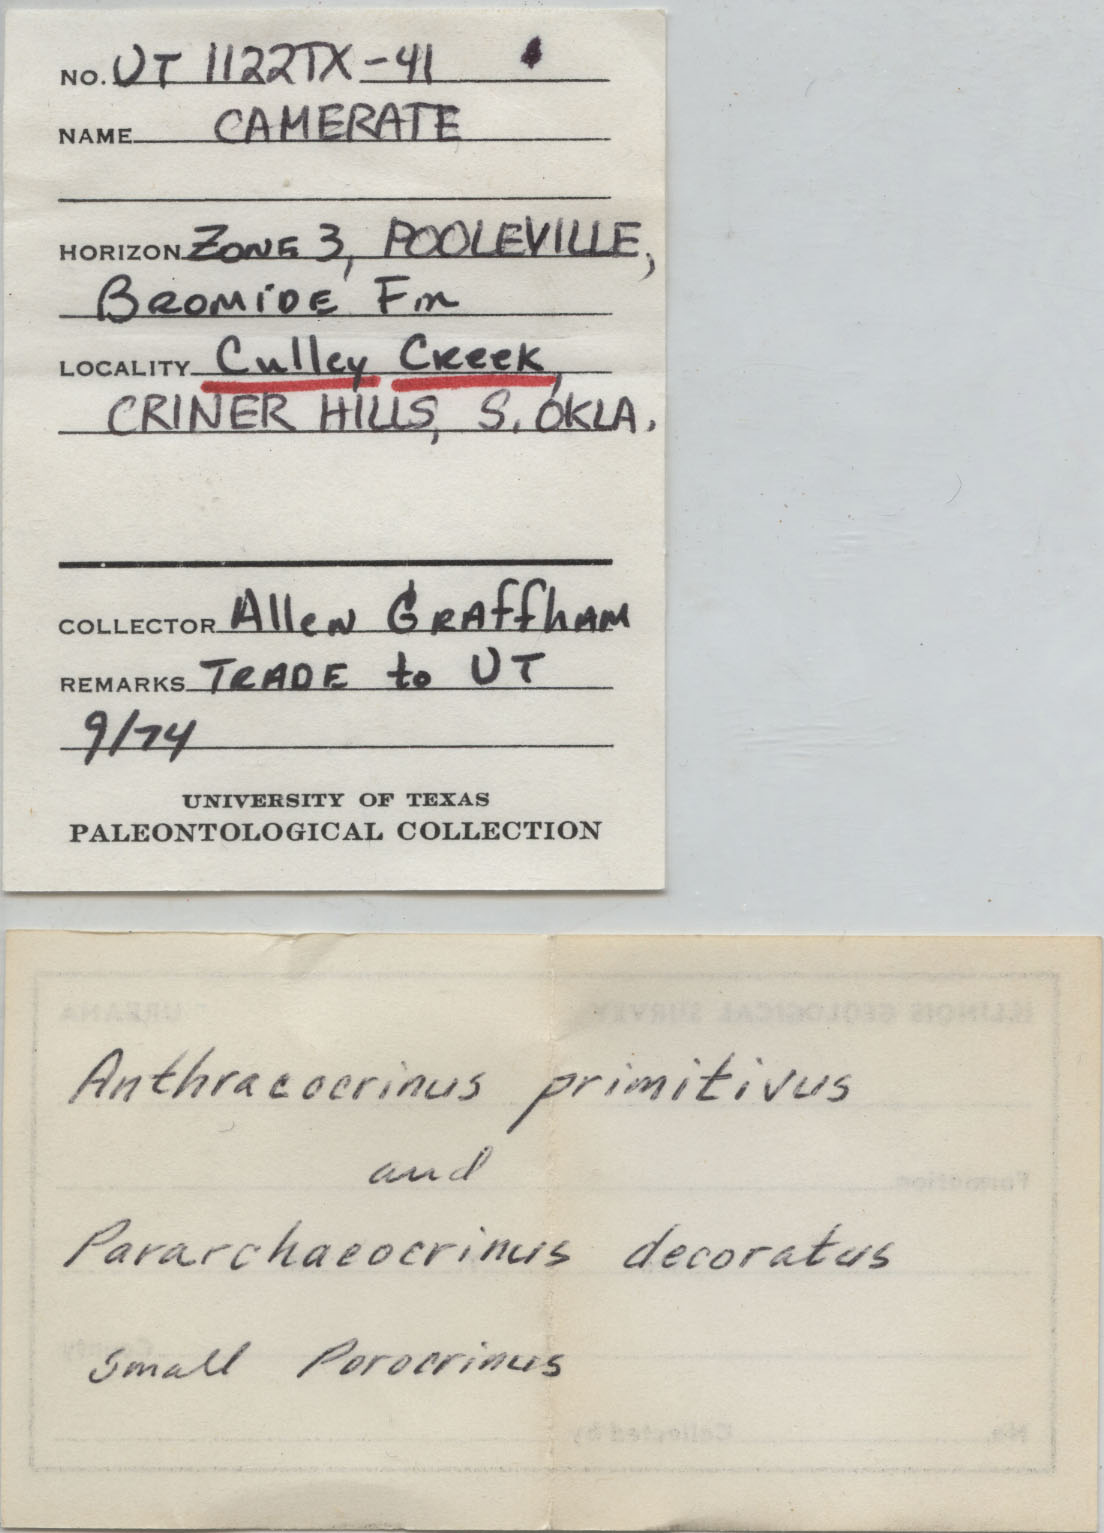 NO. UT 1122TX-41
NAME CAMERATE
HORIZON ZONE 3, POOLEVILLE,
BROMIDE Fm
LOCALITY Culley Creek,
CRINER HILLS, S. OKLA.
COLLECTOR Allen GRAffhAM
REMARKS TRADE to UT
9/74
UNIVERSITY OF TEXAS
PALEONTOLOGICAL COLLECTION
ILLINOIS GEOLOGICAL SURVEY URBANA
Anthracocrinus primitivus
and
Formation
Pararchaeocrinus decoratus
County
small Porocrinus
No. Collected by